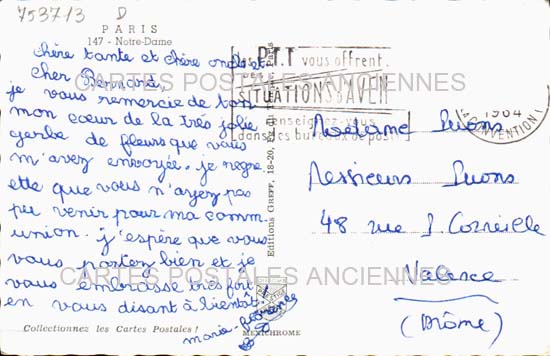 75371/3 D
PARIS
147 - Notre-Dame
chère tante et chère oncle et
cher Bernard,
je vous remercie de tout
mon cœur de la très jolie
gerbe de fleurs que vous
m'avez envoyée. je regre
ette que vous n'ayez pas
pu venir pour ma comm
union. j'espère que vous
vous portez bien et je
vous embrasse très fort
en vous disant à bientôt.
Collectionnez les Cartes Postales !
Editions GREFF, 18-20,
MEXICHROME
P.T.T vous offrent
SITUATIONS D'AVENIR
Renseignez-vous
dans les bureaux de poste
1964
CONVENTION
Madame
Messieurs
48 rue P. Corneille
Valence
(Drôme)
CARTES POSTALES ANCIENNES
CARTES POSTALES ANCIENNES